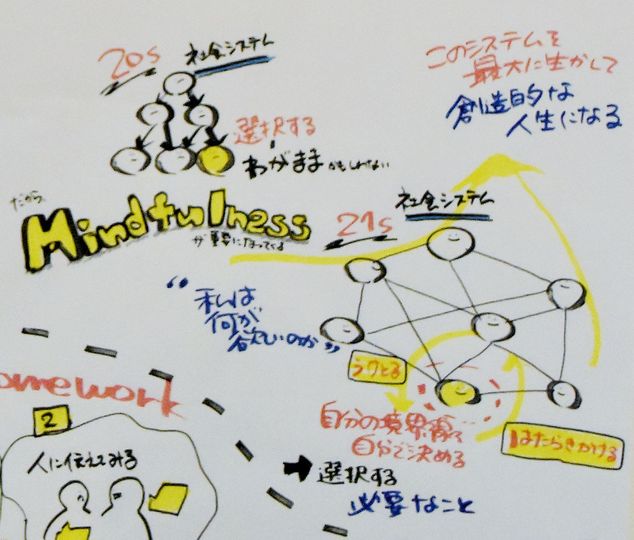 20s
社会システム
選択する
わがままかもしれない
このシステムを
最大に生かして
創造的な
人生になる
だから
Mindfulness
が重要になってくる
21s
社会システム
“私は
何が
欲しいのか”
うけとる
自分の境界線を
自分で決める
はたらきかける
選択する
必要なこと
omework
2
人に伝えてみる